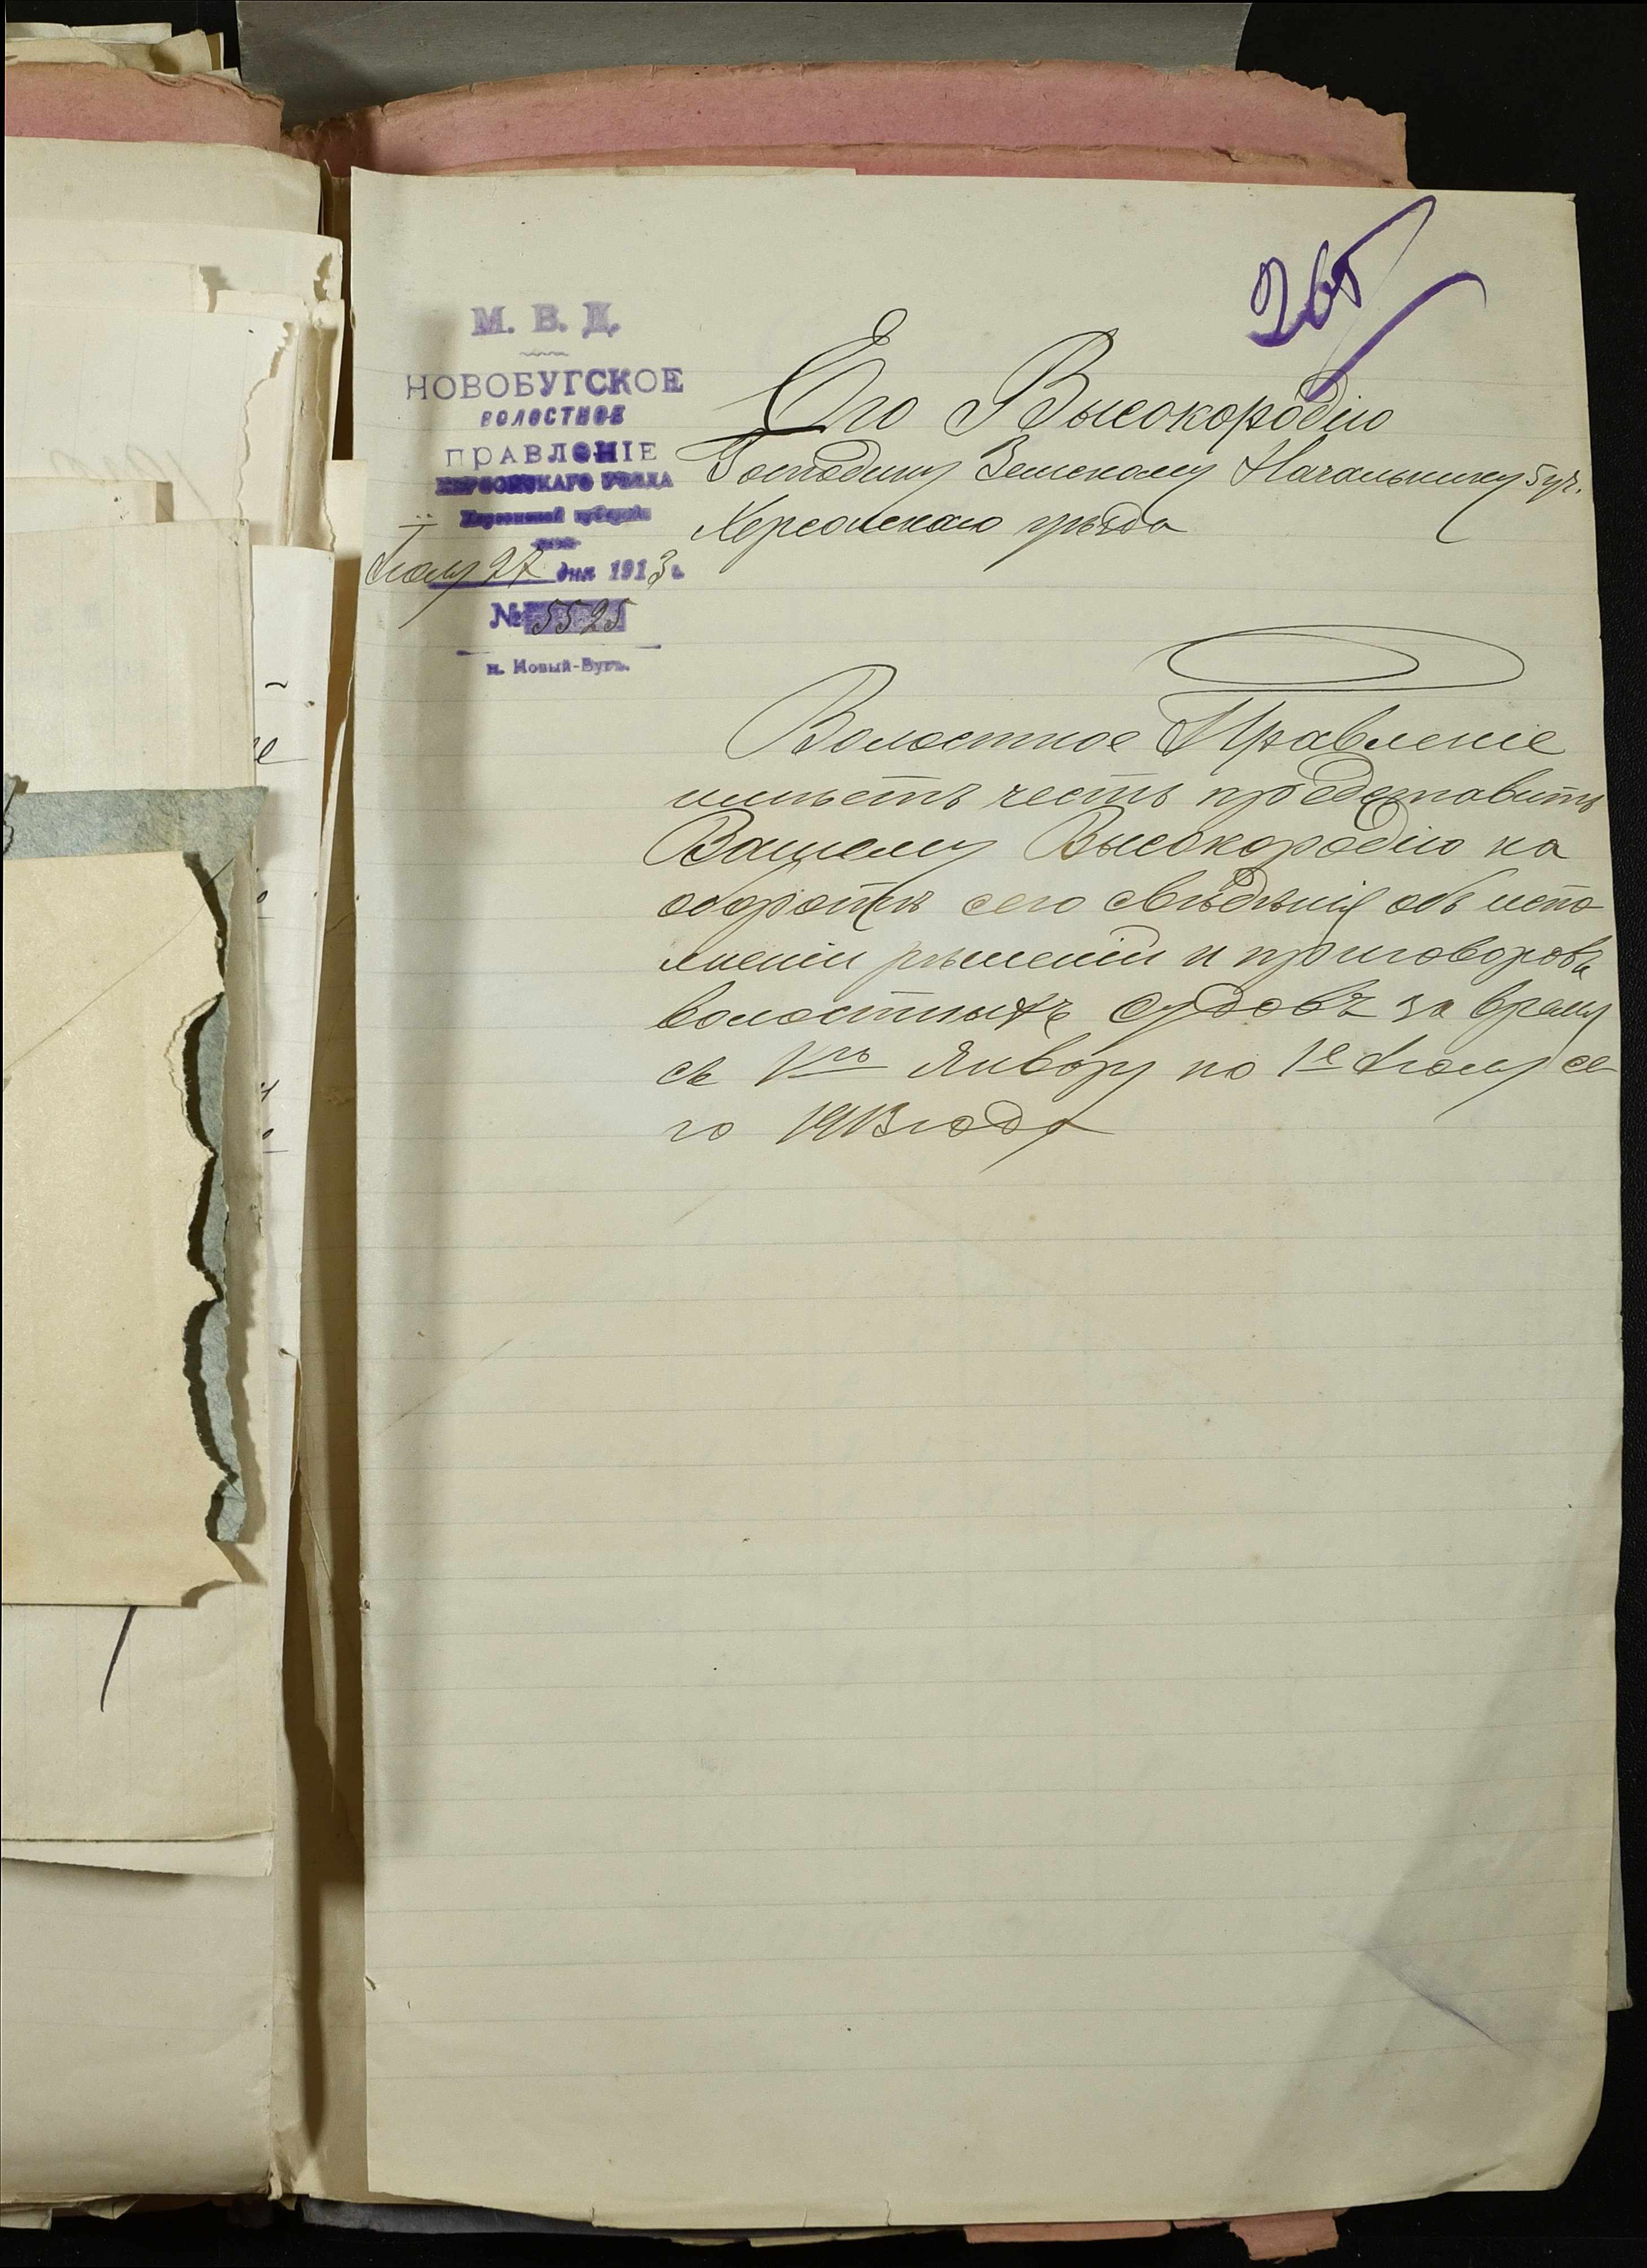 265
М. В. Д.
НОВОБУГСКОЕ
ВОЛОСТНОЕ
ПРАВЛЕНІЕ
ХЕРСОНСКАГО УѢЗДА
Херсонской губерніи
Іюля 27 дня 1913 г.
№ 5525
м. Новый-Бугъ.
Его Высокородію
Господину Земскому Начальнику 5 уч.
Херсонскаго уѣзда
Волостное Правленіе
имѣетъ честь представить
Вашему Высокородію на
оборотѣ сего свѣдѣнія объ испо
лненіи рѣшеній и приговоровъ
волостныхъ судовъ за время
съ 1го Января по 1е Іюля се-
го 1913 года